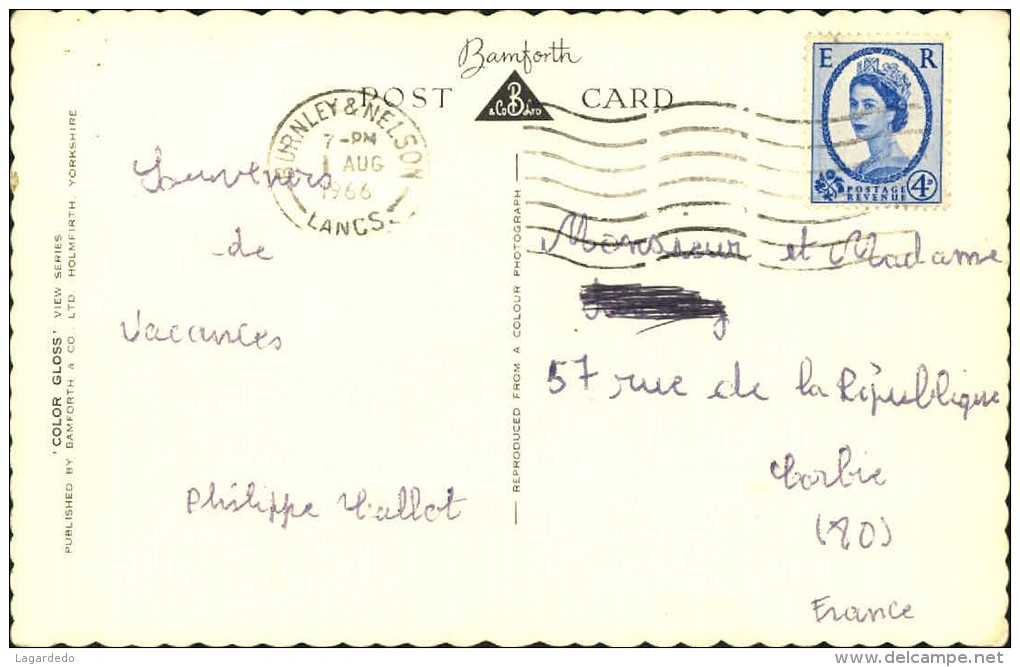 Bamforth
POST CARD
& Co B Ltd
E R
POSTAGE
REVENUE
4D
BURNLEY & NELSON
7-PM
1 AUG
1966
LANCS.
Souvenirs
de
Vacances
Philippe Vallot
Monsieur et Madame
57 rue de la République
Corbie
(80)
France
'COLOR GLOSS' VIEW SERIES
PUBLISHED BY BAMFORTH & CO., LTD. HOLMFIRTH, YORKSHIRE
REPRODUCED FROM A COLOUR PHOTOGRAPH
Lagardedo
http://www.delcampe.net